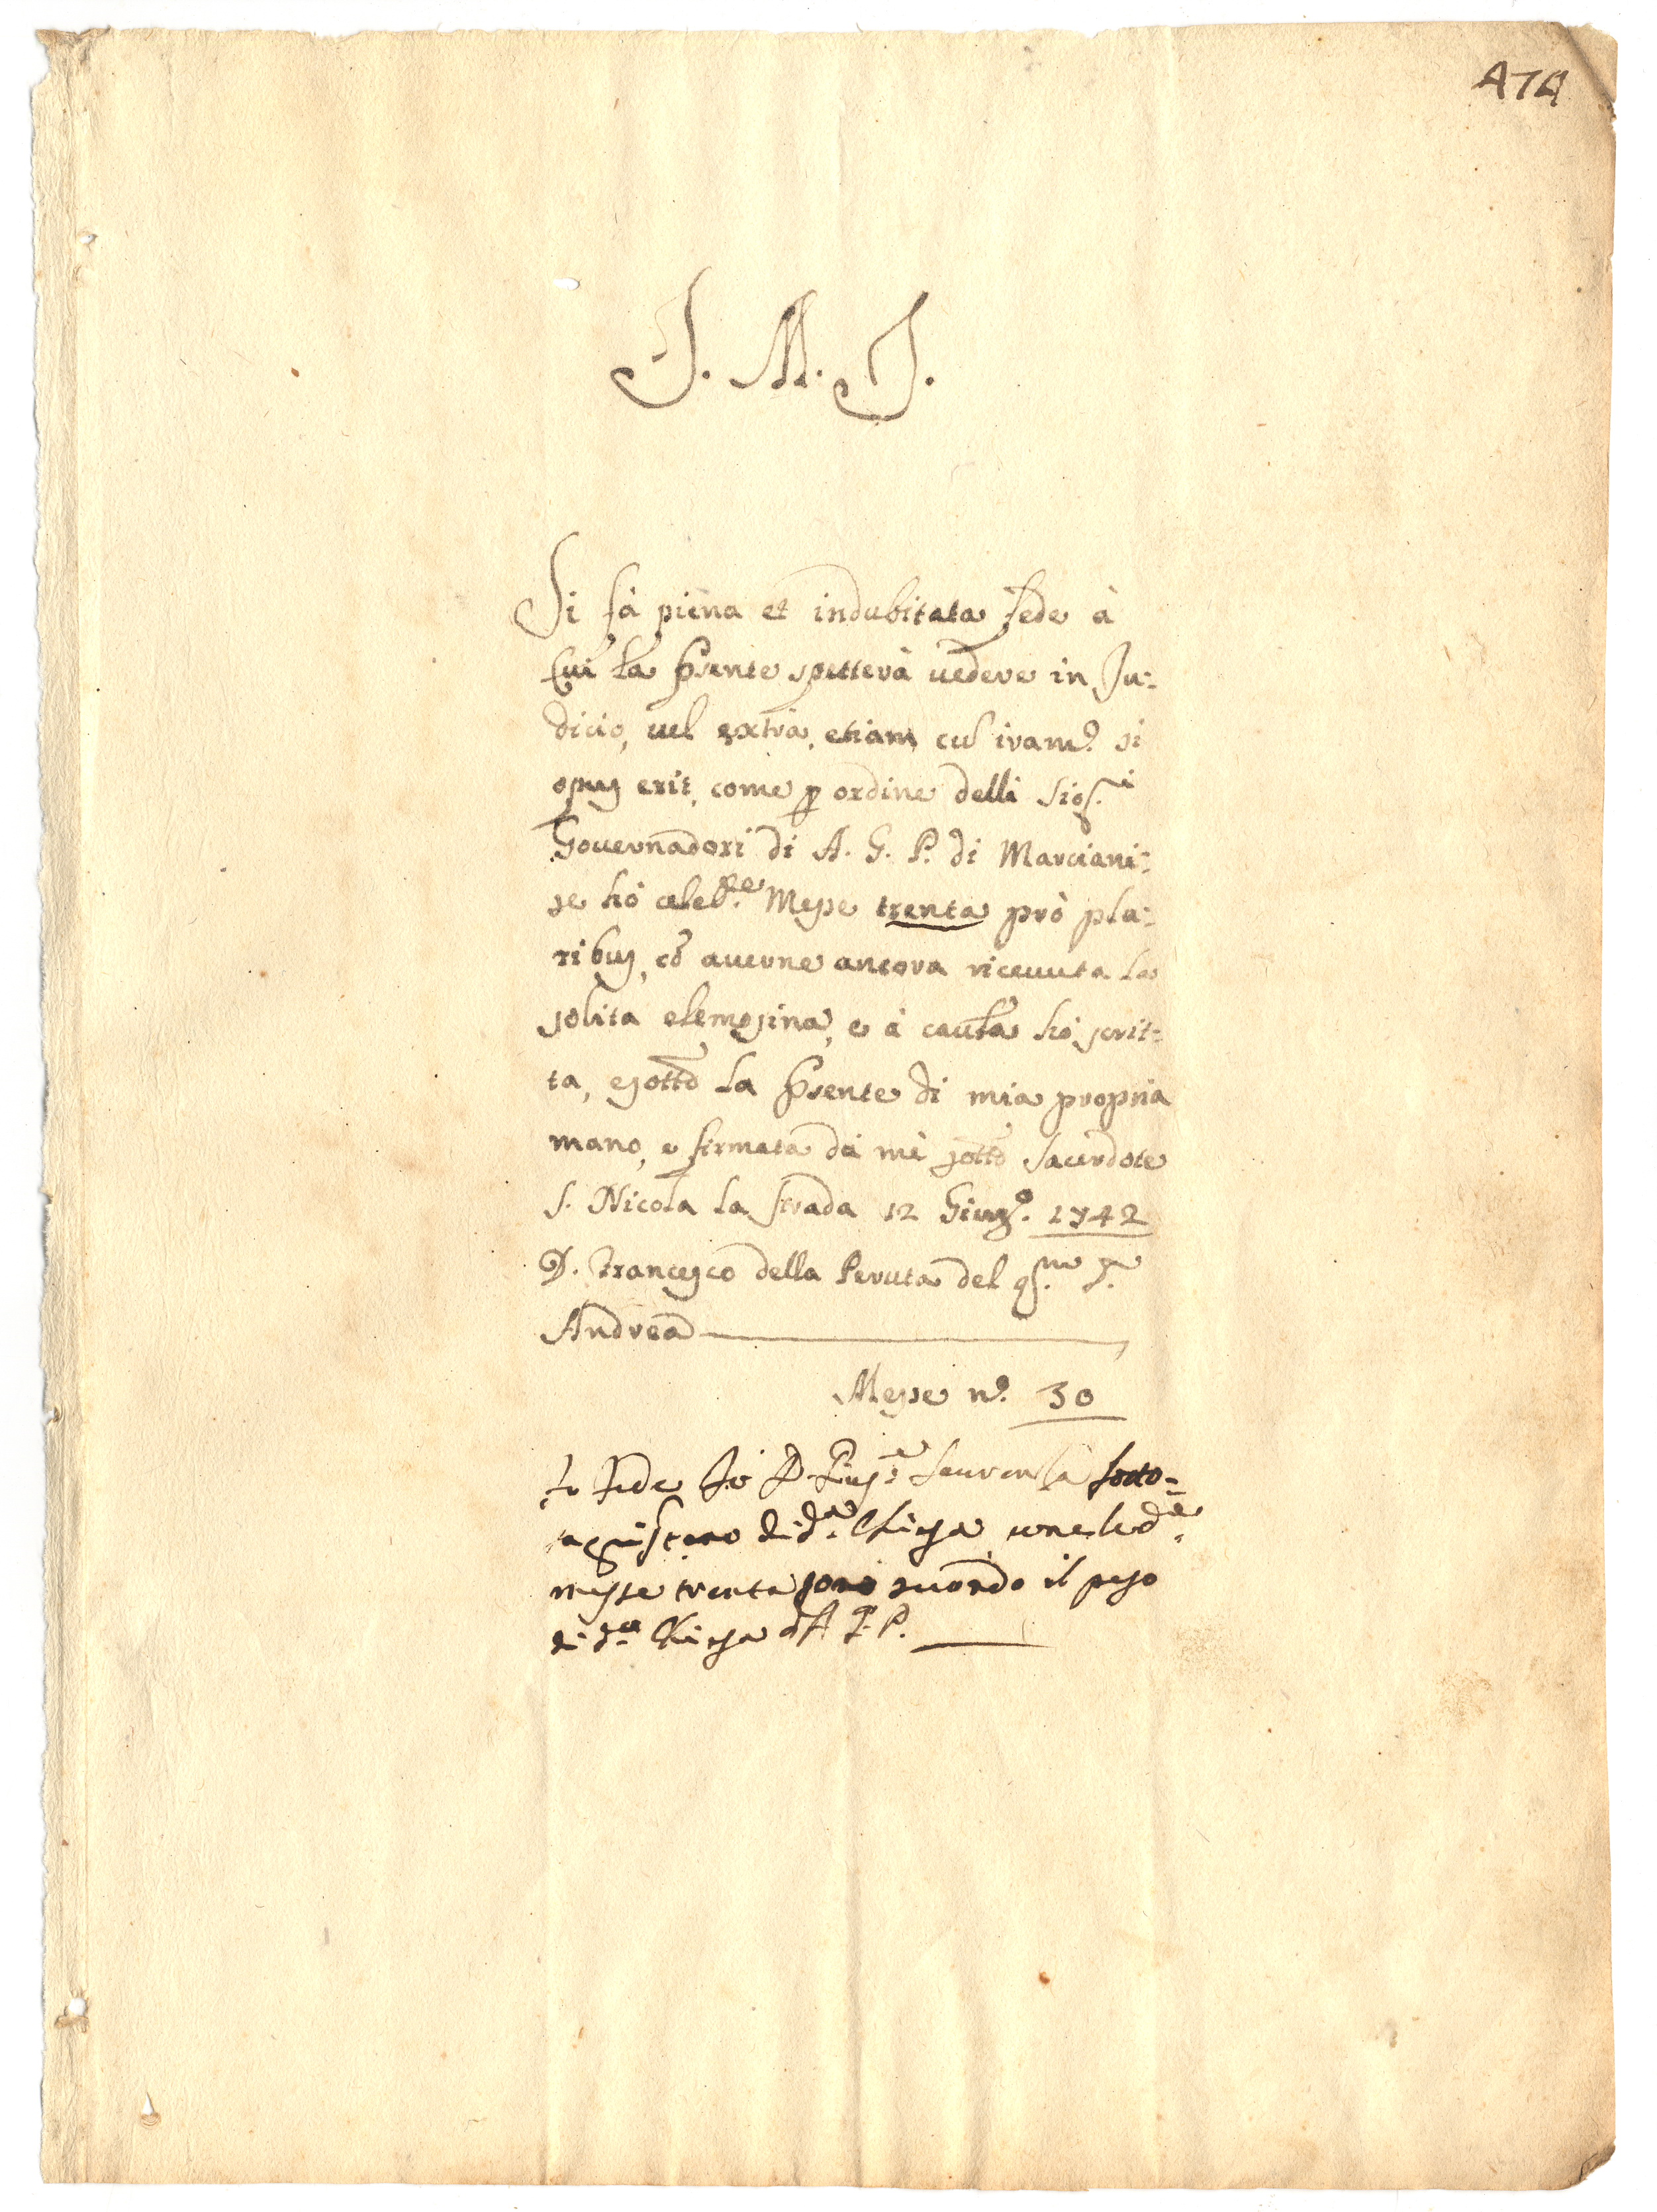 A74
J. M. J.
Si fà piena et indubitata fede à
cui la pnte spetterà vedere in Ju:
dicio, vel extra, etiam cu iuram.º si
opus erit, come p ordine delli Sig.ri
Governadori di A. G. P. di Marciani:
se hò celeb.te Messe trenta prò plu:
ribus, cō averne ancora ricevuta la
solita elemosina, e à cautela hò scrit:
ta, e sottō la pnte di mia propria
mano, e firmata da mè sottō Sacerdote
S. Nicola la strada 12 Giug.º 1742
D. Francesco della Peruta del q.m
Andrea
Messe n.º 30
fo fede Io D. sotto=
di d.a Chiesa come le d.e
messe trenta sono secondo il peso
di d.a Chiesa d'A. G. P.